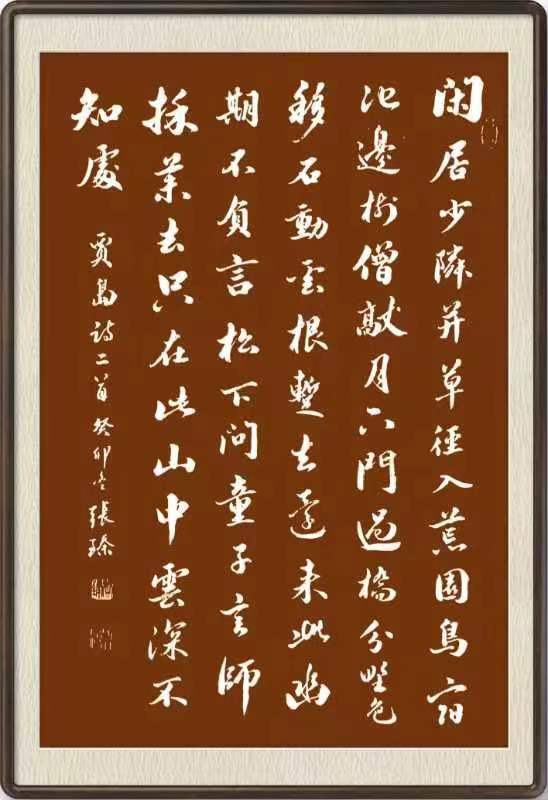 閑居少隣並草徑入荒園鳥宿
池邊樹僧敲月下門過橋分野色
移石動雲根暫去還来此幽
期不負言松下问童子言師
採藥去只在此山中雲深不
知處
贾島诗二首癸卯冬張臻